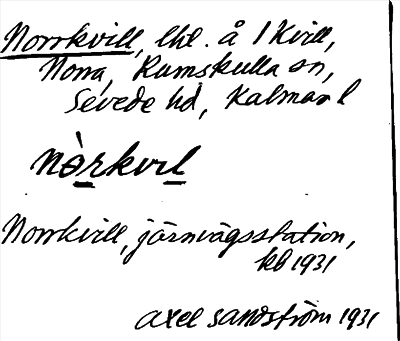 Norrkvill, lhl. å 1 Kvill,
Norra, Rumskulla sn,
Sevede hd, Kalmar l
nò̠rkvıl̠
Norrkvill, järnvägsstation,
kb 1931
Axel Sandström 1931